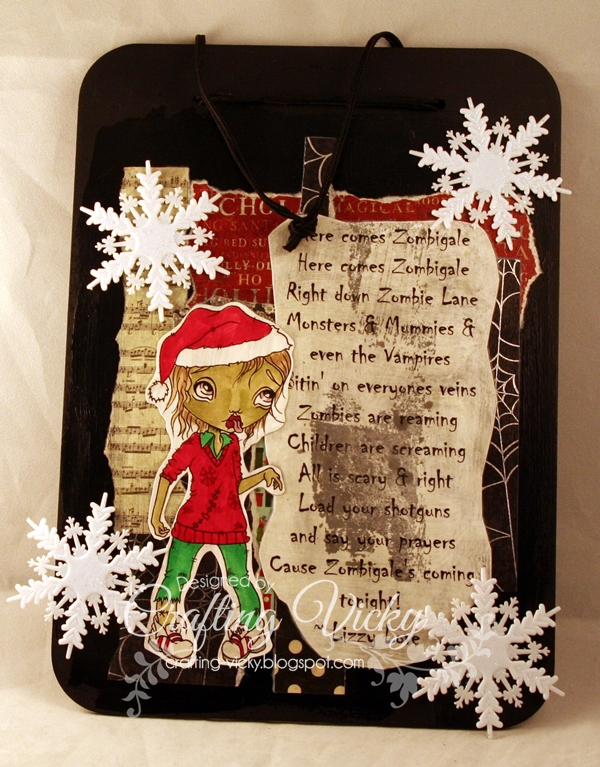 CHO MAGICAL
NG SANTA
RED SU
LLY OL
HO
Here comes Zombigale
Here comes Zombigale
Right down Zombie Lane
Monsters & Mummies &
even the Vampires
Bitin' on everyones veins
Zombies are reaming
Children are screaming
All is scary & right
Load your shotguns
and say your prayers
Cause Zombigale's coming
tonight!
~ Lizzy Love
Designed by
Crafting Vicky
crafting-vicky.blogspot.com